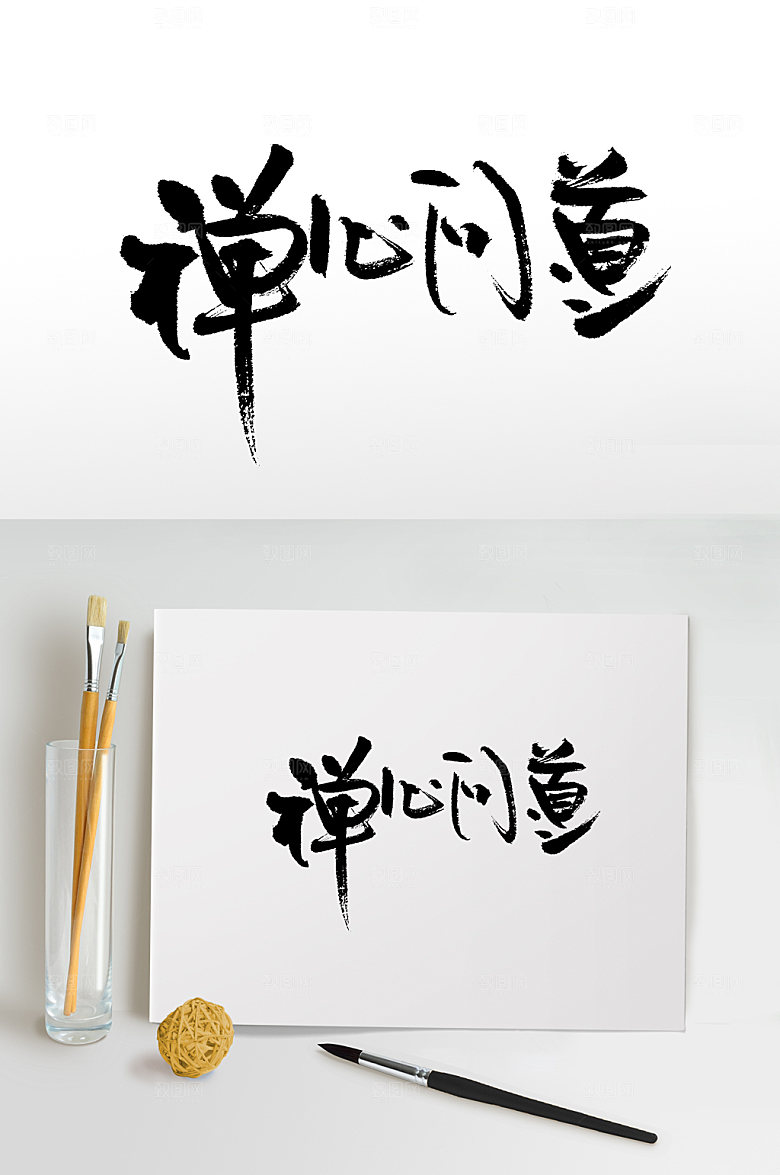 禅心问道
禅心问道